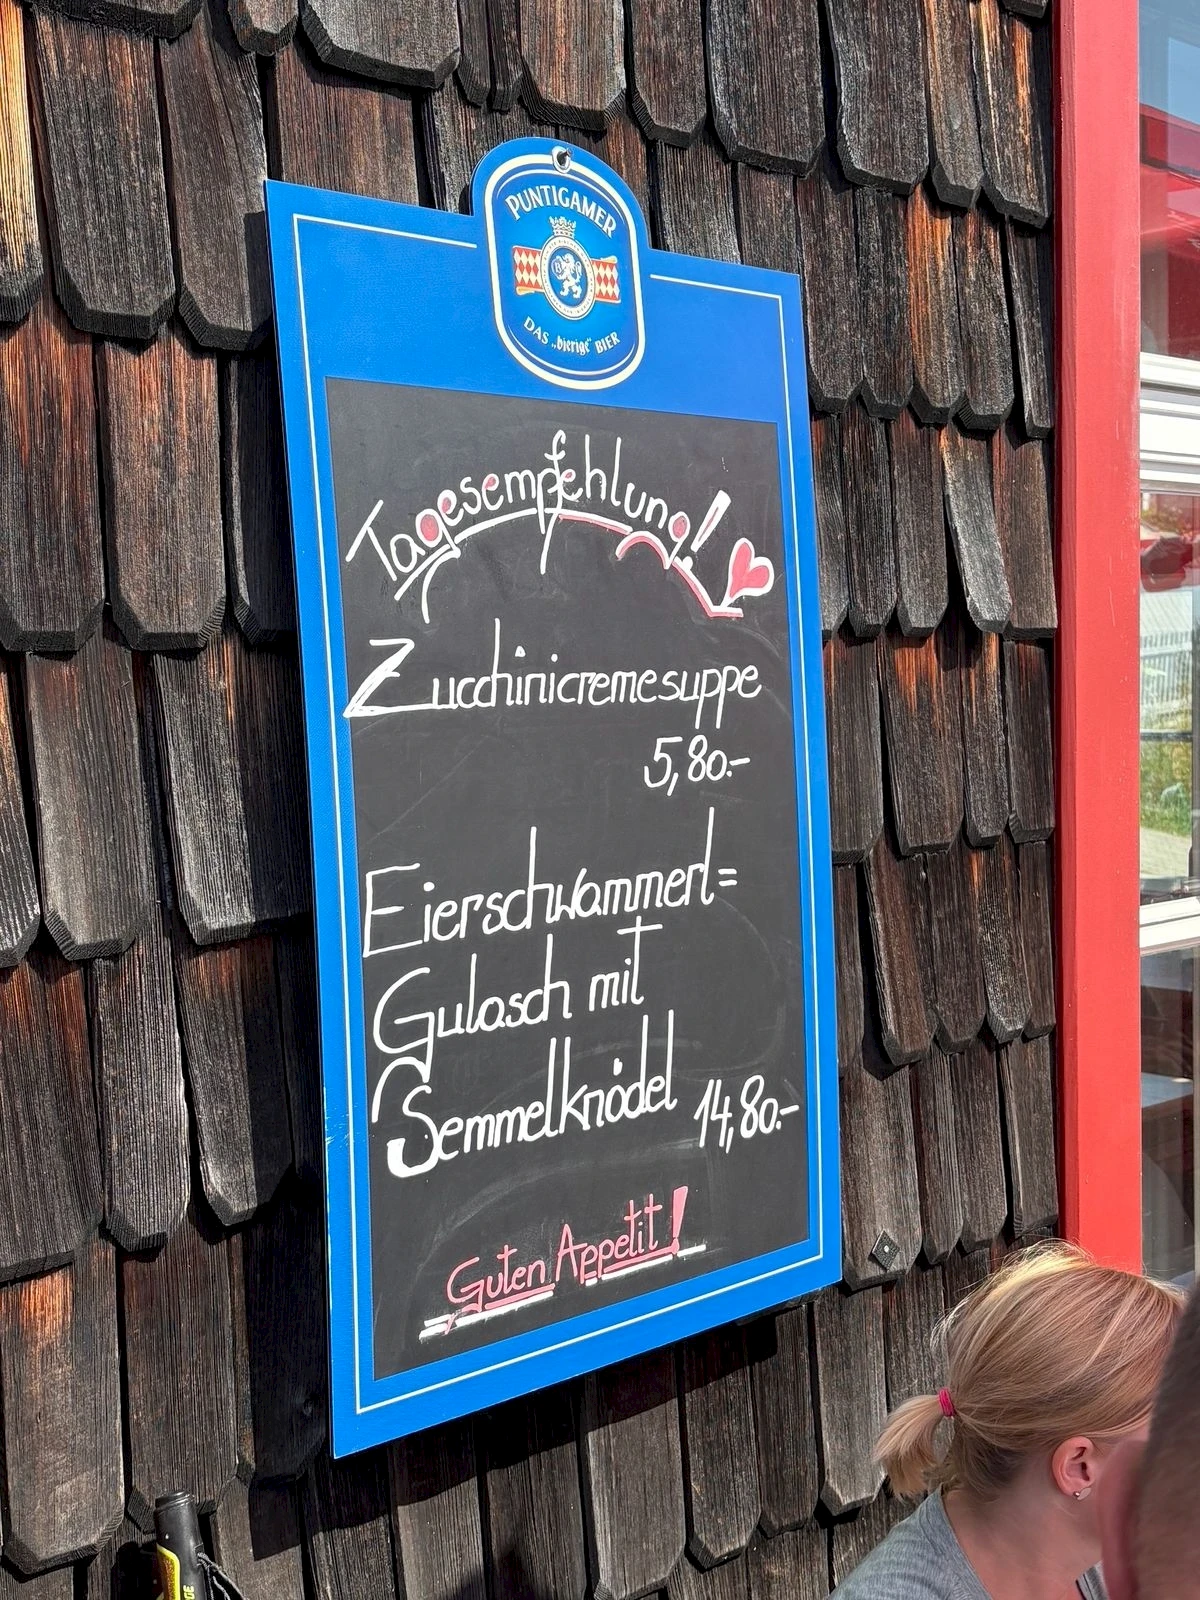 PUNTIGAMER
DAS „bierige“ BIER
Tagesempfehlung!
Zucchinicremesuppe
5,80.-
Eierschwammerl=
Gulasch mit
Semmelknödel 14,80.-
Guten Appetit!